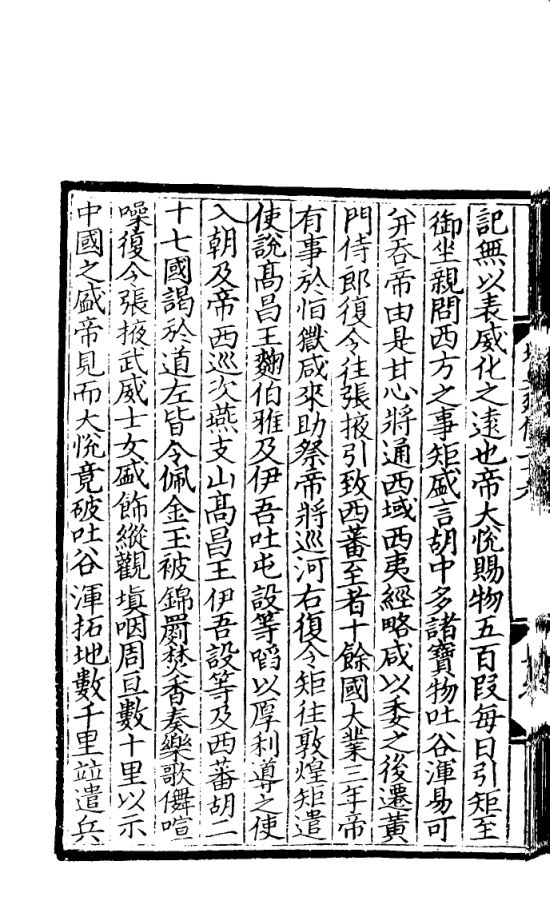 記無以表威化之遠也帝大悅賜物五百段每日引矩至
御坐親問西方之事矩盛言胡中多諸寶物吐谷渾易可
并吞帝由是甘心將通西域西夷經略咸以委之後遷黃
門侍郎復令往張掖引致西蕃至者十餘國大業三年帝
有事於恒嶽咸來助祭帝將巡河右復令矩往敦煌矩遣
使說髙昌王麴伯雅及伊吾吐屯設等啗以厚利導之使
入朝及帝西巡次燕支山髙昌王伊吾設等及西蕃胡二
十七國謁於道左皆令佩金玉被錦罽焚香奏樂歌儛喧
噪復令張掖武威士女盛飾縱觀塡咽周亘數十里以示
中國之盛帝見而大悅竟破吐谷渾拓地數千里竝遣兵